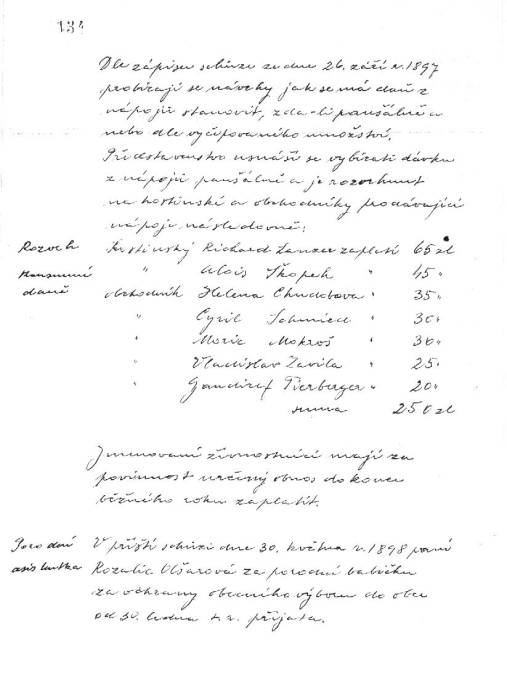 134
Dle zápisu schůze ze dne 26. září r. 1897
probírají se návrhy jak se má daň z
nápojů stanovit, zda-li paušálně a
nebo dle vyčepovaného množství.
Představenstvo usnáší se vybírati dávku
z nápojů paušálně a je rozvrhnut
na hostinské a obchodníky prodávající
nápoje následovně:
Rozvrh hostinský Richard Lanzer zaplatí 65 zl
konsumní " Alois Škopek " 45 "
daně obchodník Helena Chudobova " 35 "
" Cyril Schmied " 30 "
" Moric Mokroš " 30 "
" Vladislav Zavila " 25 "
" Tierberger " 20 "
suma 250 zl
Jmenovaní živnostníci mají za
povinnost určený obnos do konce
běžného roku zaplatit.
Porodní V příští schůzi dne 30. května r. 1898 paní
asistentka Rozalie Olšarová za porodní babičku
za ochrany obecního výboru do obce
od 30. ledna t.r. přijata.